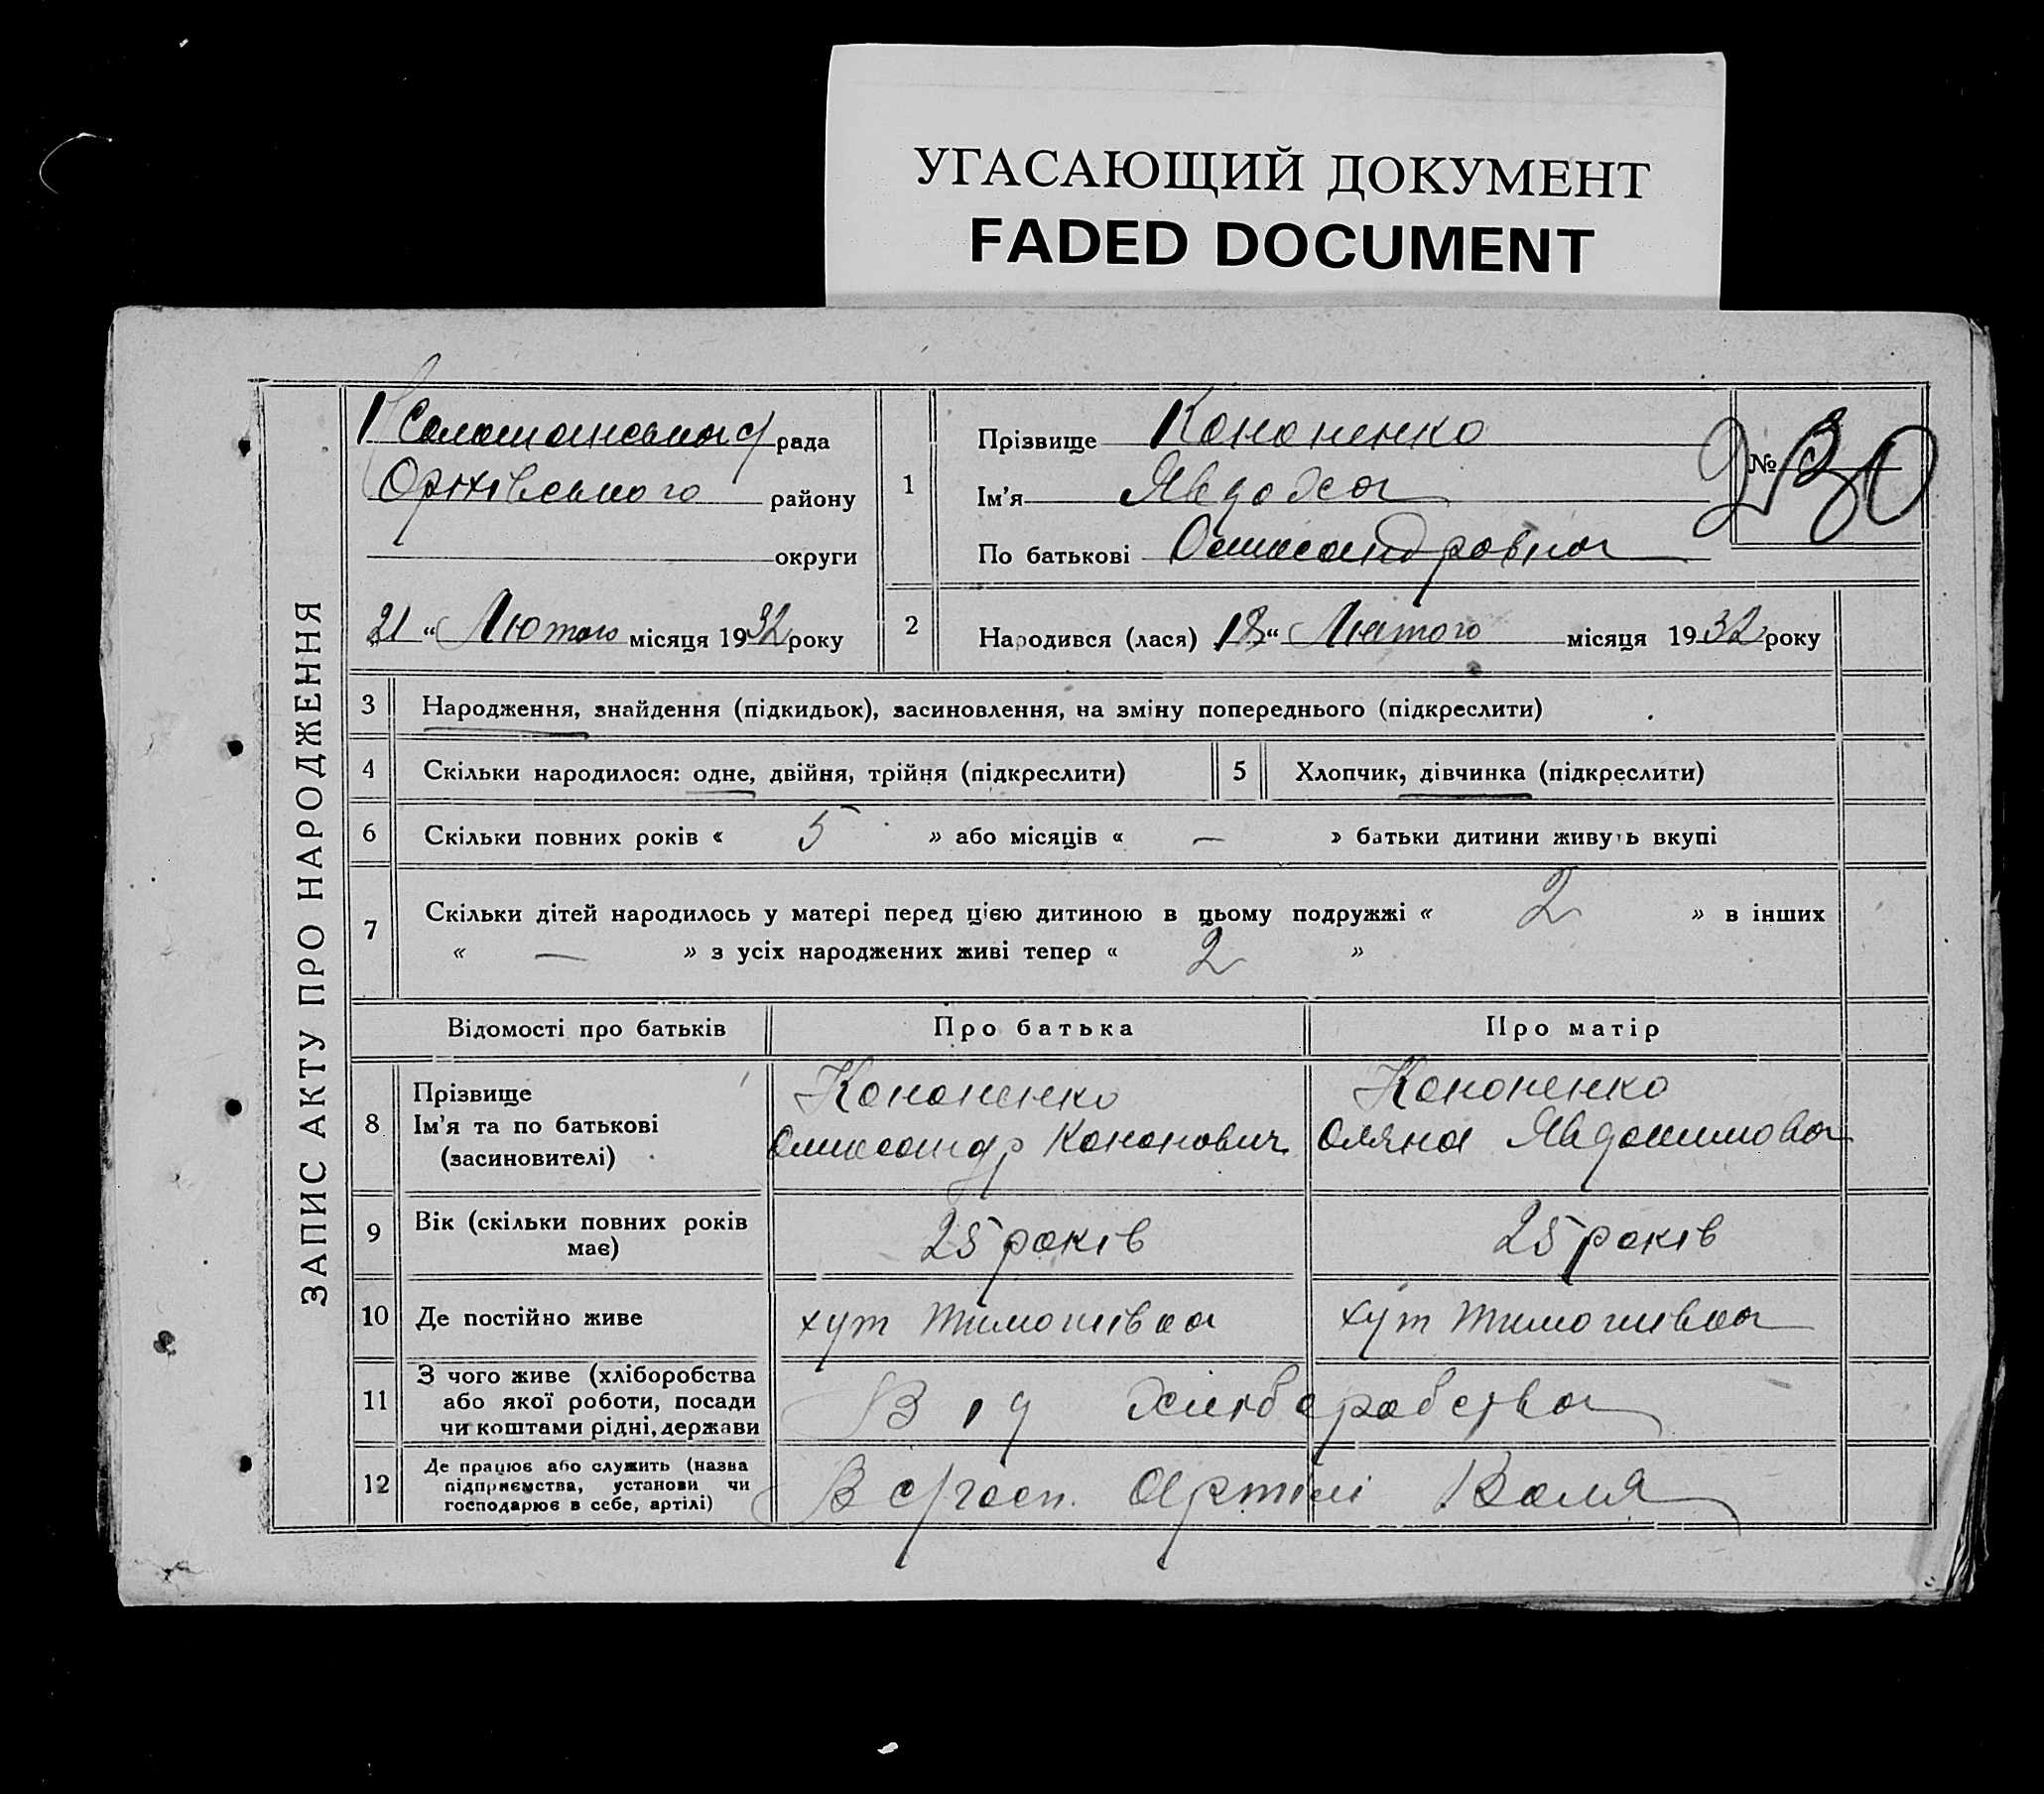 УГАСАЮЩИЙ ДОКУМЕНТ
FADED DOCUMENT
ЗАПИС АКТУ ПРО НАРОДЖЕННЯ
рада
Оріхівського району
округи
21 “ Лютого місяця 1932 року
1
Прізвище Кононенко
Ім’я Явдоха
По батькові Олександровна
№ 230
2
Народився (лася) 18 “ Лютого місяця 1932 року
3 Народження, знайдення (підкидьок), засиновлення, на зміну попереднього (підкреслити)
4 Скільки народилося: одне, двійня, трійня (підкреслити) 5 Хлопчик, дівчинка (підкреслити)
6 Скільки повних років « 5 » або місяців « — » батьки дитини живуть вкупі
7 Скільки дітей народилось у матері перед цією дитиною в цьому подружжі « 2 » в інших
« — » з усіх народжених живі тепер « 2 »
Відомості про батьків Про батька Про матір
8 Прізвище Кононенко Кононенко
Ім’я та по батькові Олександр Кононович Оляна Явдокимова
(засиновителі)
9 Вік (скільки повних років має) 25 років 25 років
10 Де постійно живе хут Тимошівка хут Тимошивка
11 З чого живе (хліборобства
або якої роботи, посади
чи коштами рідні, держави
Від Хліборобства
12 Де працює або служить (назва
підприємства, установи чи
господарює в себе, артілі)
В с/госп. Артілі Воля